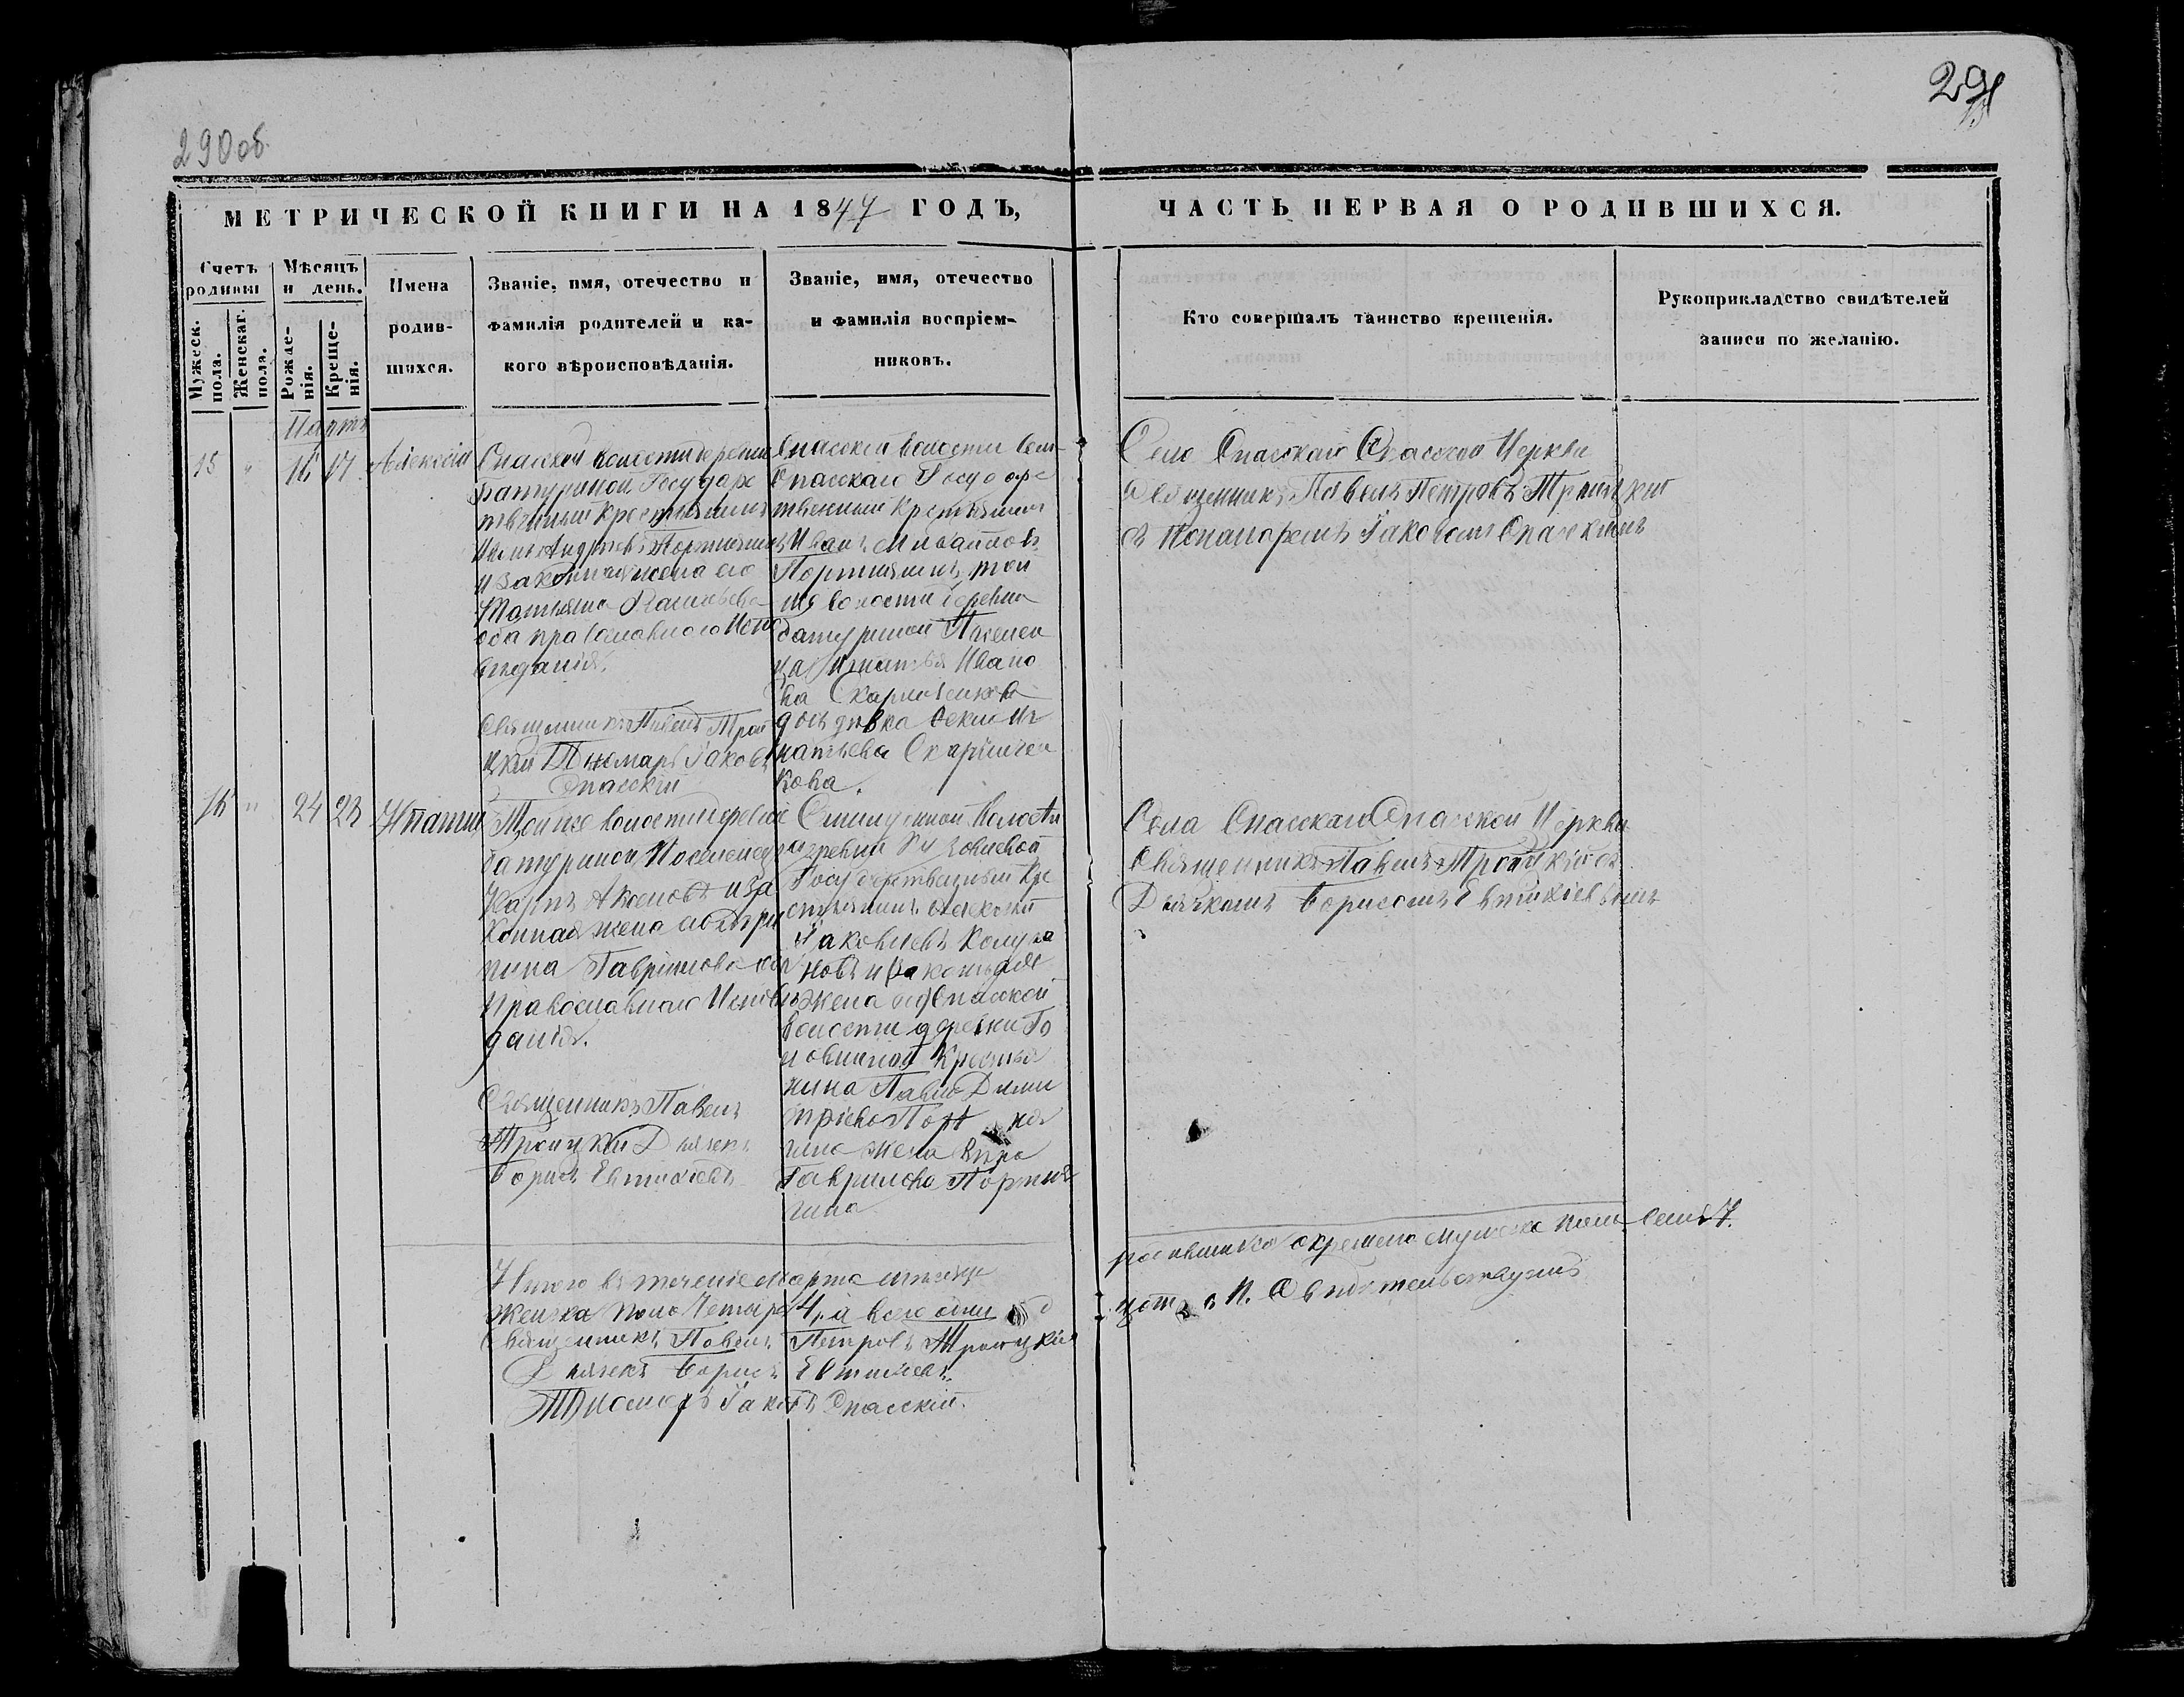 290об.
291
МЕТРИЧЕСКОЙ КНИГИ НА 1847 ГОДЪ,
ЧАСТЬ ПЕРВАЯ О РОДИВШИХСЯ.
Счетъ родивш
Мѣсяцъ и день.
Мужеск. пола.
Женскаг. пола.
Рожде-
нія.
Креще-
нія.
Имена
родив-
шихся.
Званіе, имя, отечество и
фамилія родителей и ка-
кого вѣроисповѣданія.
Званіе, имя, отечество
и фамилія воспріем-
никовъ.
Кто совершалъ таинство крещенія.
Рукоприкладство свидѣтелей
записи по желанію.
Мартъ
15 " 16 17 Алексій
Спаской волости деревни
Батуриной Государс
твенный крестьянинъ
Андреевъ Портнягинъ
и законная жена его
Татьяна Васильева
оба православного Испо
веданія.
Священникъ Павелъ Трои
цкій Пономарь Іаковъ
Спасскій
Спасской волости села
Спасскаго Государс
твенный Крестьянинъ
Иванъ
Портнягинъ, той
же волости деревни
Батуриной Поселен
ца Игнатья Ивано
ва
дочь девка Иг
натьева
кова.
Села Спасскаго Спасской Церкви
Священникъ Павелъ Петровъ Троицкій
съ Пономаремъ Іаковомъ Спасскимъ
16 " 24 23 Ипатій
Той же волости деревни
Батуриной Поселенецъ
Карпъ Аксеновъ и за
конная жена его
Гаврилова оба
Православнаго Исповѣ
данія.
Священникъ Павелъ
Троицкій Дьячекъ
Борисъ Евтихіевъ
волости
деревни
Государственный Кре
стьянинъ Алексѣй
Іаковлевъ
новъ и
жена Спасской
волости деревни Го
ловиной Крестья
нина Павла Дими
тріева Портня
гина жена Вѣра
Гаврилова Портня
гина
Села Спасскаго Спасской Церкви
Священникъ Павелъ Троицкій съ
Дьячкомъ Борисомъ Евтихіевымъ
Итого въ теченіе марта месяца
родившихся окрещено мужеска пола семь 7.
женска пола четыре 4, а всего один
цать 11. Свидѣтельствуемъ
Священникъ Павелъ Петровъ Троицкій
Дьячекъ Борисъ Евтихіевъ
Пономарь Іаковъ Спасскій.